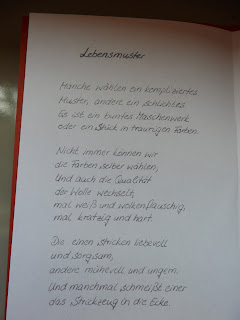 Lebensmuster
Manche wählen ein kompliziertes
Muster, andere ein schlichtes.
Es ist ein buntes Maschenwerk
oder ein Stück in traurigen Farben.
Nicht immer können wir
die Farben selber wählen,
Und auch die Qualität
der Wolle wechselt,
mal weiß und wolkenflauschig,
mal kratzig und hart.
Die einen stricken liebevoll
und sorgsam,
andere mühevoll und ungern.
Und manchmal schmeißt einer
das Strickzeug in die Ecke.